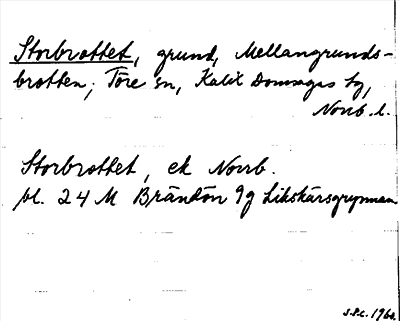 Storbrottet, grund, Mellangrunds-
brotten; Töre sn, Kalix Domsagas tg,
Norrb. l.
Storbrottet, ek Norrb.
bl. 24 M Brändön 9g Likskärsgrynnan
S.P.C. 1960.